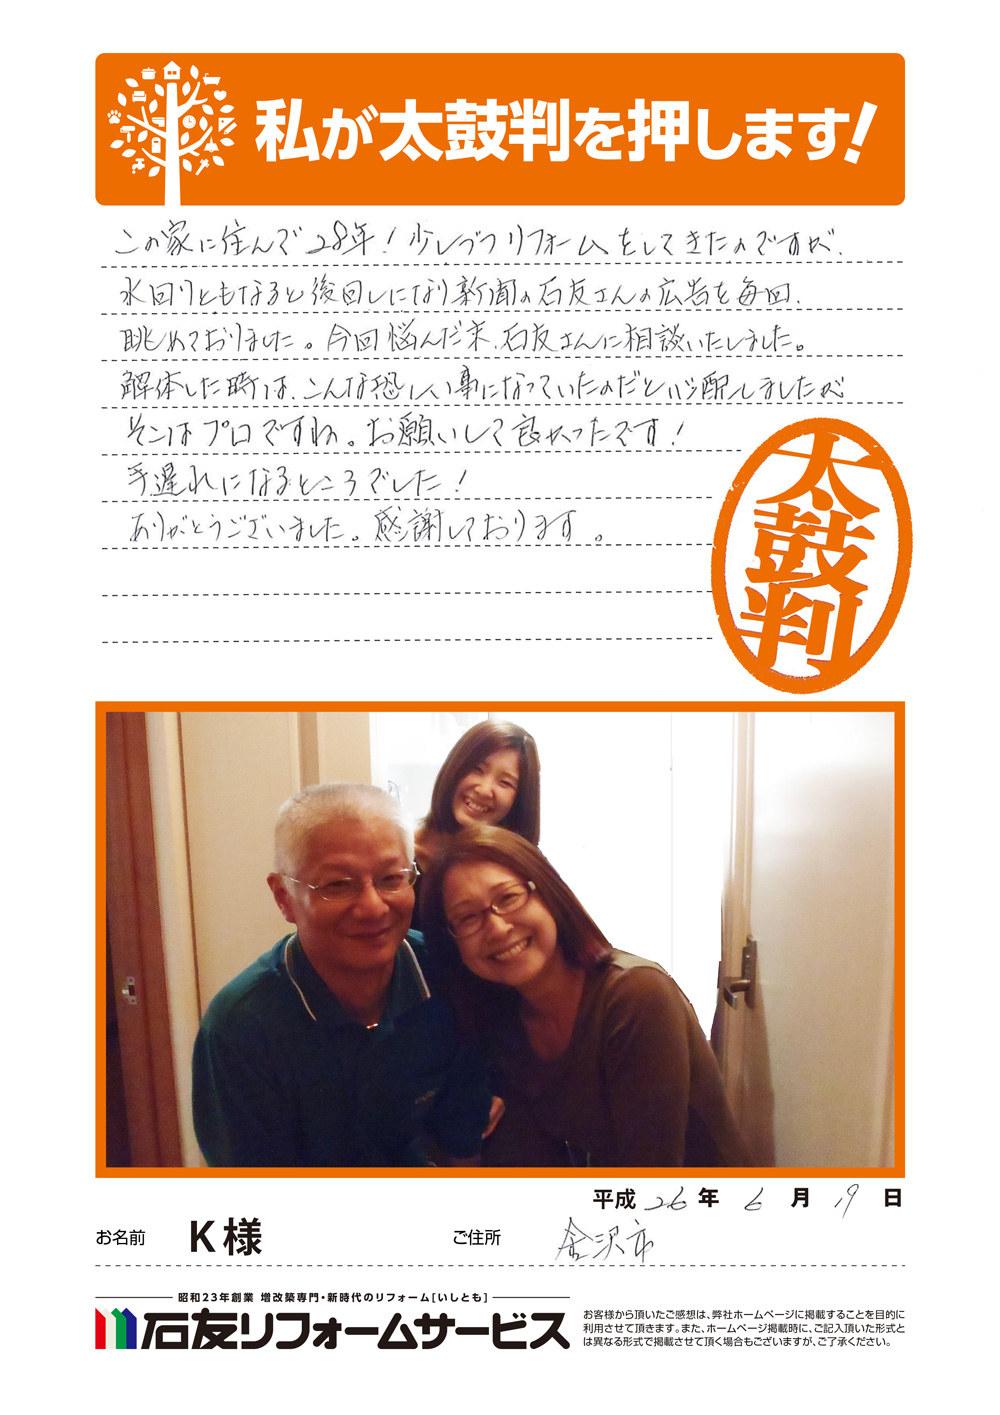 私が太鼓判を押します!
この家に住んで28年!少しづつリフォームをしてきたのですが、
水回りともなると後回しになり新聞の石友さんの広告を毎回、
眺めておりました。今回悩んだ末、石友さんに相談いたしました。
解体した時は、こんな恐しい事になっていたのだと心配しましたが
そこはプロですね。お願いして良かったです!
手遅れになるところでした!
ありがとうございました。感謝しております。
太鼓判
平成26年6月19日
お名前 K様 ご住所 金沢市
昭和23年創業 増改築専門・新時代のリフォーム[いしとも]
石友リフォームサービス
お客様から頂いたご感想は、弊社ホームページに掲載することを目的に
利用させて頂きます。また、ホームページ掲載時に、ご記入頂いた形式と
は異なる形式で掲載させて頂く場合もございますが、ご了承ください。